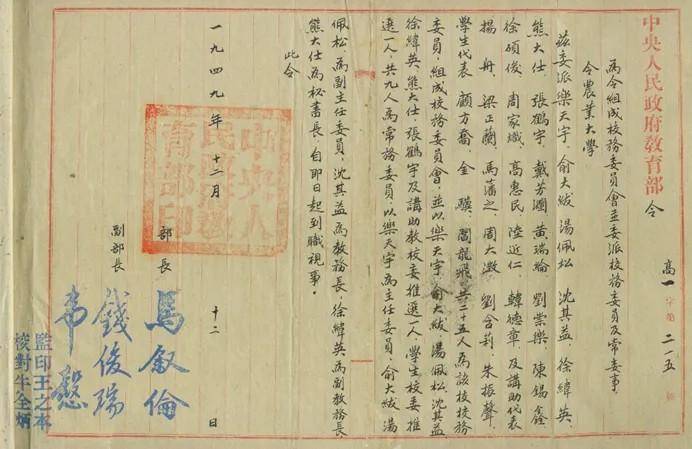 中央人民政府教育部 令 高一字第二一五號
為令組成校務委員會並委派校務委員及常委事．
令農業大學
茲委派樂天宇．俞大紱．湯佩松．沈其益．徐緯英．
熊大仕．張鶴宇．戴芳瀾．黃瑞綸．劉崇樂．陳錫鑫
徐碩俊．周家熾．高惠民．陸近仁．韓德章．及講助代表
楊舟．梁正蘭．馬藩之．周大澂．劉含莉．朱振聲．
學生代表 顧方喬．金 騤．閻龍飛等共二十五人為該校校務
委員．組成校務委員會．並以樂天宇．俞大紱．湯佩松．沈其益
徐緯英．熊大仕．張鶴宇及講助教校委推選一人．學生校委推
選一人．共九人為常務委員．以樂天宇為主任委員．俞大紱．湯
佩松為副主任委員．沈其益為教務長．徐緯英為副教務長
熊大仕為秘書長．自即日起到職視事．
此令
一九四九年 十二月 十二 日
中央人
民政府教
育部印
部長 馬叙倫
副部長 錢俊瑞
韋慤
監印王之本
校對牛全炳